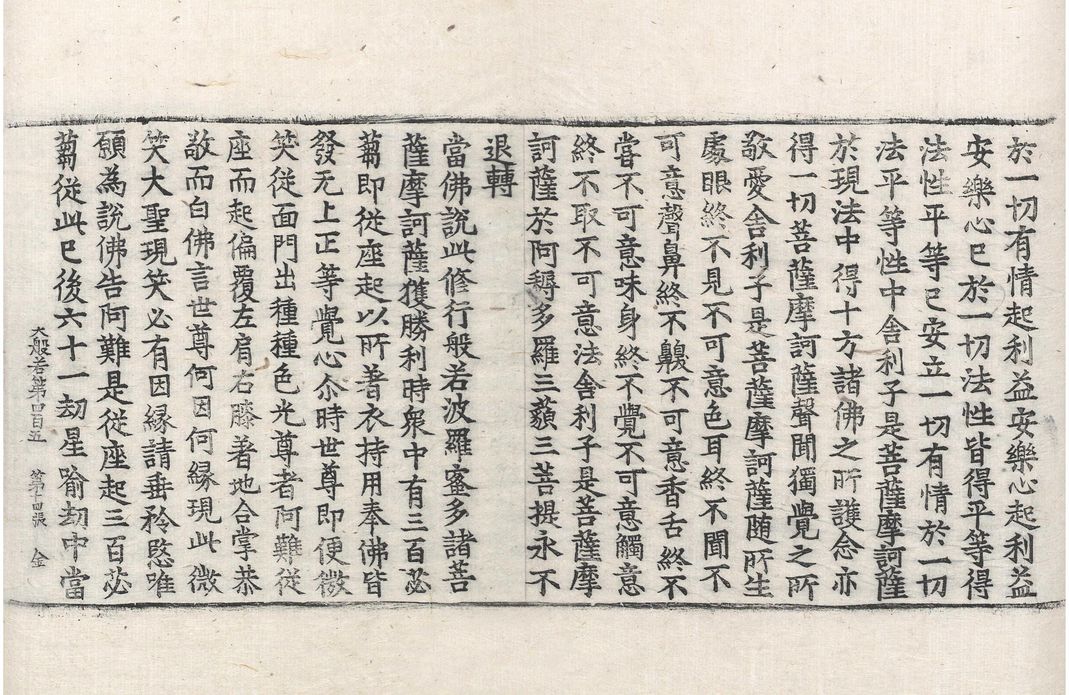 於一切有情起利益安樂心起利益
安樂心已於一切法性皆得平等得
法性平等已安立一切有情於一切
法平等性中舍利子是菩薩摩訶薩
於現法中得十方諸佛之所護念亦
得一切菩薩摩訶薩聲聞獨覺之所
敬愛舍利子是菩薩摩訶薩随所生
處眼終不見不可意色耳終不聞不
可意聲鼻終不齅不可意香舌終不
甞不可意味身終不覺不可意觸意
終不取不可意法舍利子是菩薩摩
訶薩於阿耨多羅三藐三菩提永不
退轉
當佛說此修行般若波羅蜜多諸菩
薩摩訶薩獲勝利時衆中有三百苾
蒭即從座起以所著衣持用奉佛皆
發无上正等覺心尒時世尊即便微
笑從面門出種種色光尊者阿難從
座而起偏覆左肩右膝著地合掌恭
敬而白佛言世尊何因何縁現此微
笑大聖現笑必有因縁請垂矜愍唯
願為說佛告阿難是從座起三百苾
蒭從此已後六十一劫星喻劫中當
大般若第四百五 第十四張 金